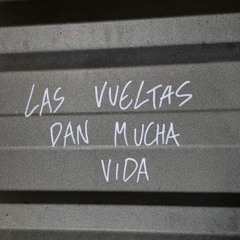 LAS VUELTAS
DAN MUCHA
VIDA